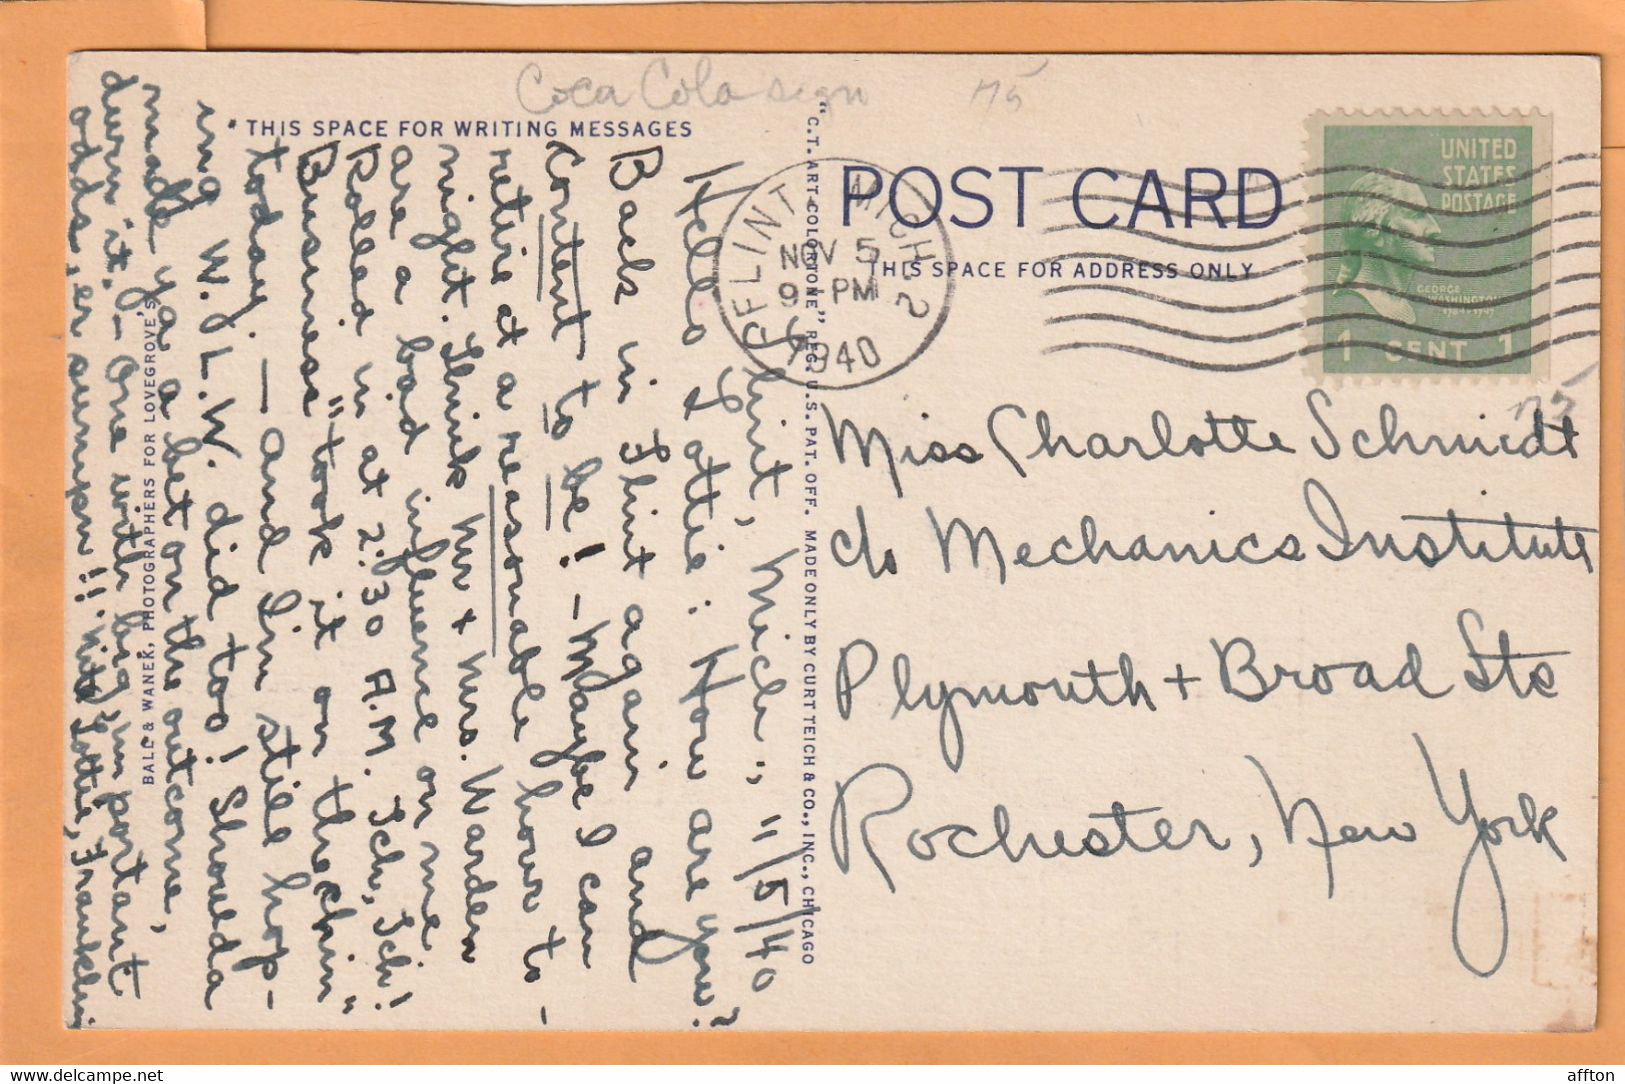 Coca Cola sign
"THIS SPACE FOR WRITING MESSAGES
Flint, Mich., 11/5/40
Hello Lottie: How are you?
Back in Flint again and
content to be! - Maybe I can
retire at a reasonable hour to-
night. Think Mr + Mrs. Warden
are a bad influence on me
Rolled in at 2:30 A.M. Tch, Tch!
Business "took it on the chin"
today. — and I'm still hop-
ing W. L. W. did too! Shoulda
made ya a bet on the outcome,
durn it. - One with big, important
odds, er sumpn!! 'Nite Lottie, Franklin
BALL & WANEK, PHOTOGRAPHERS FOR LOVEGROVE'S
"C.T. ART-COLORTONE" REG. U.S. PAT. OFF. MADE ONLY BY CURT TEICH & CO., INC., CHICAGO
POST CARD
THIS SPACE FOR ADDRESS ONLY
FLINT MICH 2
NOV 5
9 PM
1940
UNITED
STATES
POSTAGE
GEORGE
WASHINGTON
1789-1797
1 CENT 1
Miss Charlotte Schmidt
c/o Mechanics Institute
Plymouth + Broad Sts
Rochester, New York
affton